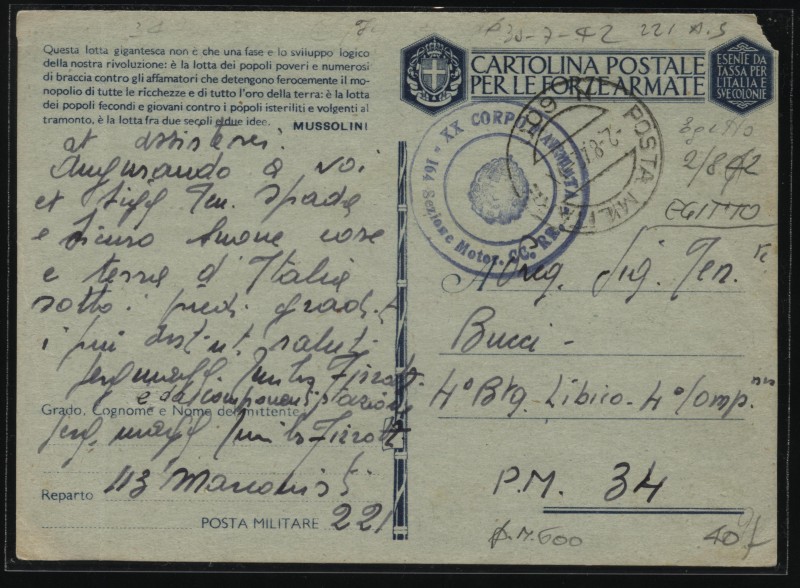 30-7-42 221 A.S
Questa lotta gigantesca non è che una fase e lo sviluppo logico
della nostra rivoluzione: è la lotta dei popoli poveri e numerosi
di braccia contro gli affamatori che detengono ferocemente il mo-
nopolio di tutte le ricchezze e di tutto l'oro della terra: è la lotta
dei popoli fecondi e giovani contro i popoli isteriliti e volgenti al
tramonto, è la lotta fra due secoli e due idee.
MUSSOLINI
CARTOLINA POSTALE
PER LE FORZE ARMATE
ESENTE DA
TASSA PER
L'ITALIA E
SVE COLONIE
XX CORPO
164 Sezione Motor. CC. RR.
POSTA MIL
Egitto
2/8 42
EGITTO
et assistervi
Augurando a voi
et Sigg Ten. Spada
e sicuro buone cose
e terra d'Italia
sotto i piedi
i più distinti saluti
e da componenti stazione
Grado, Cognome e Nome del mittente
Serg. magg.
Reparto 113 Marconisti
POSTA MILITARE 221
Sig. Ten.
Bucci -
4° Btg. Libico - 4° Comp.
P.M. 34
P.M. 600
40